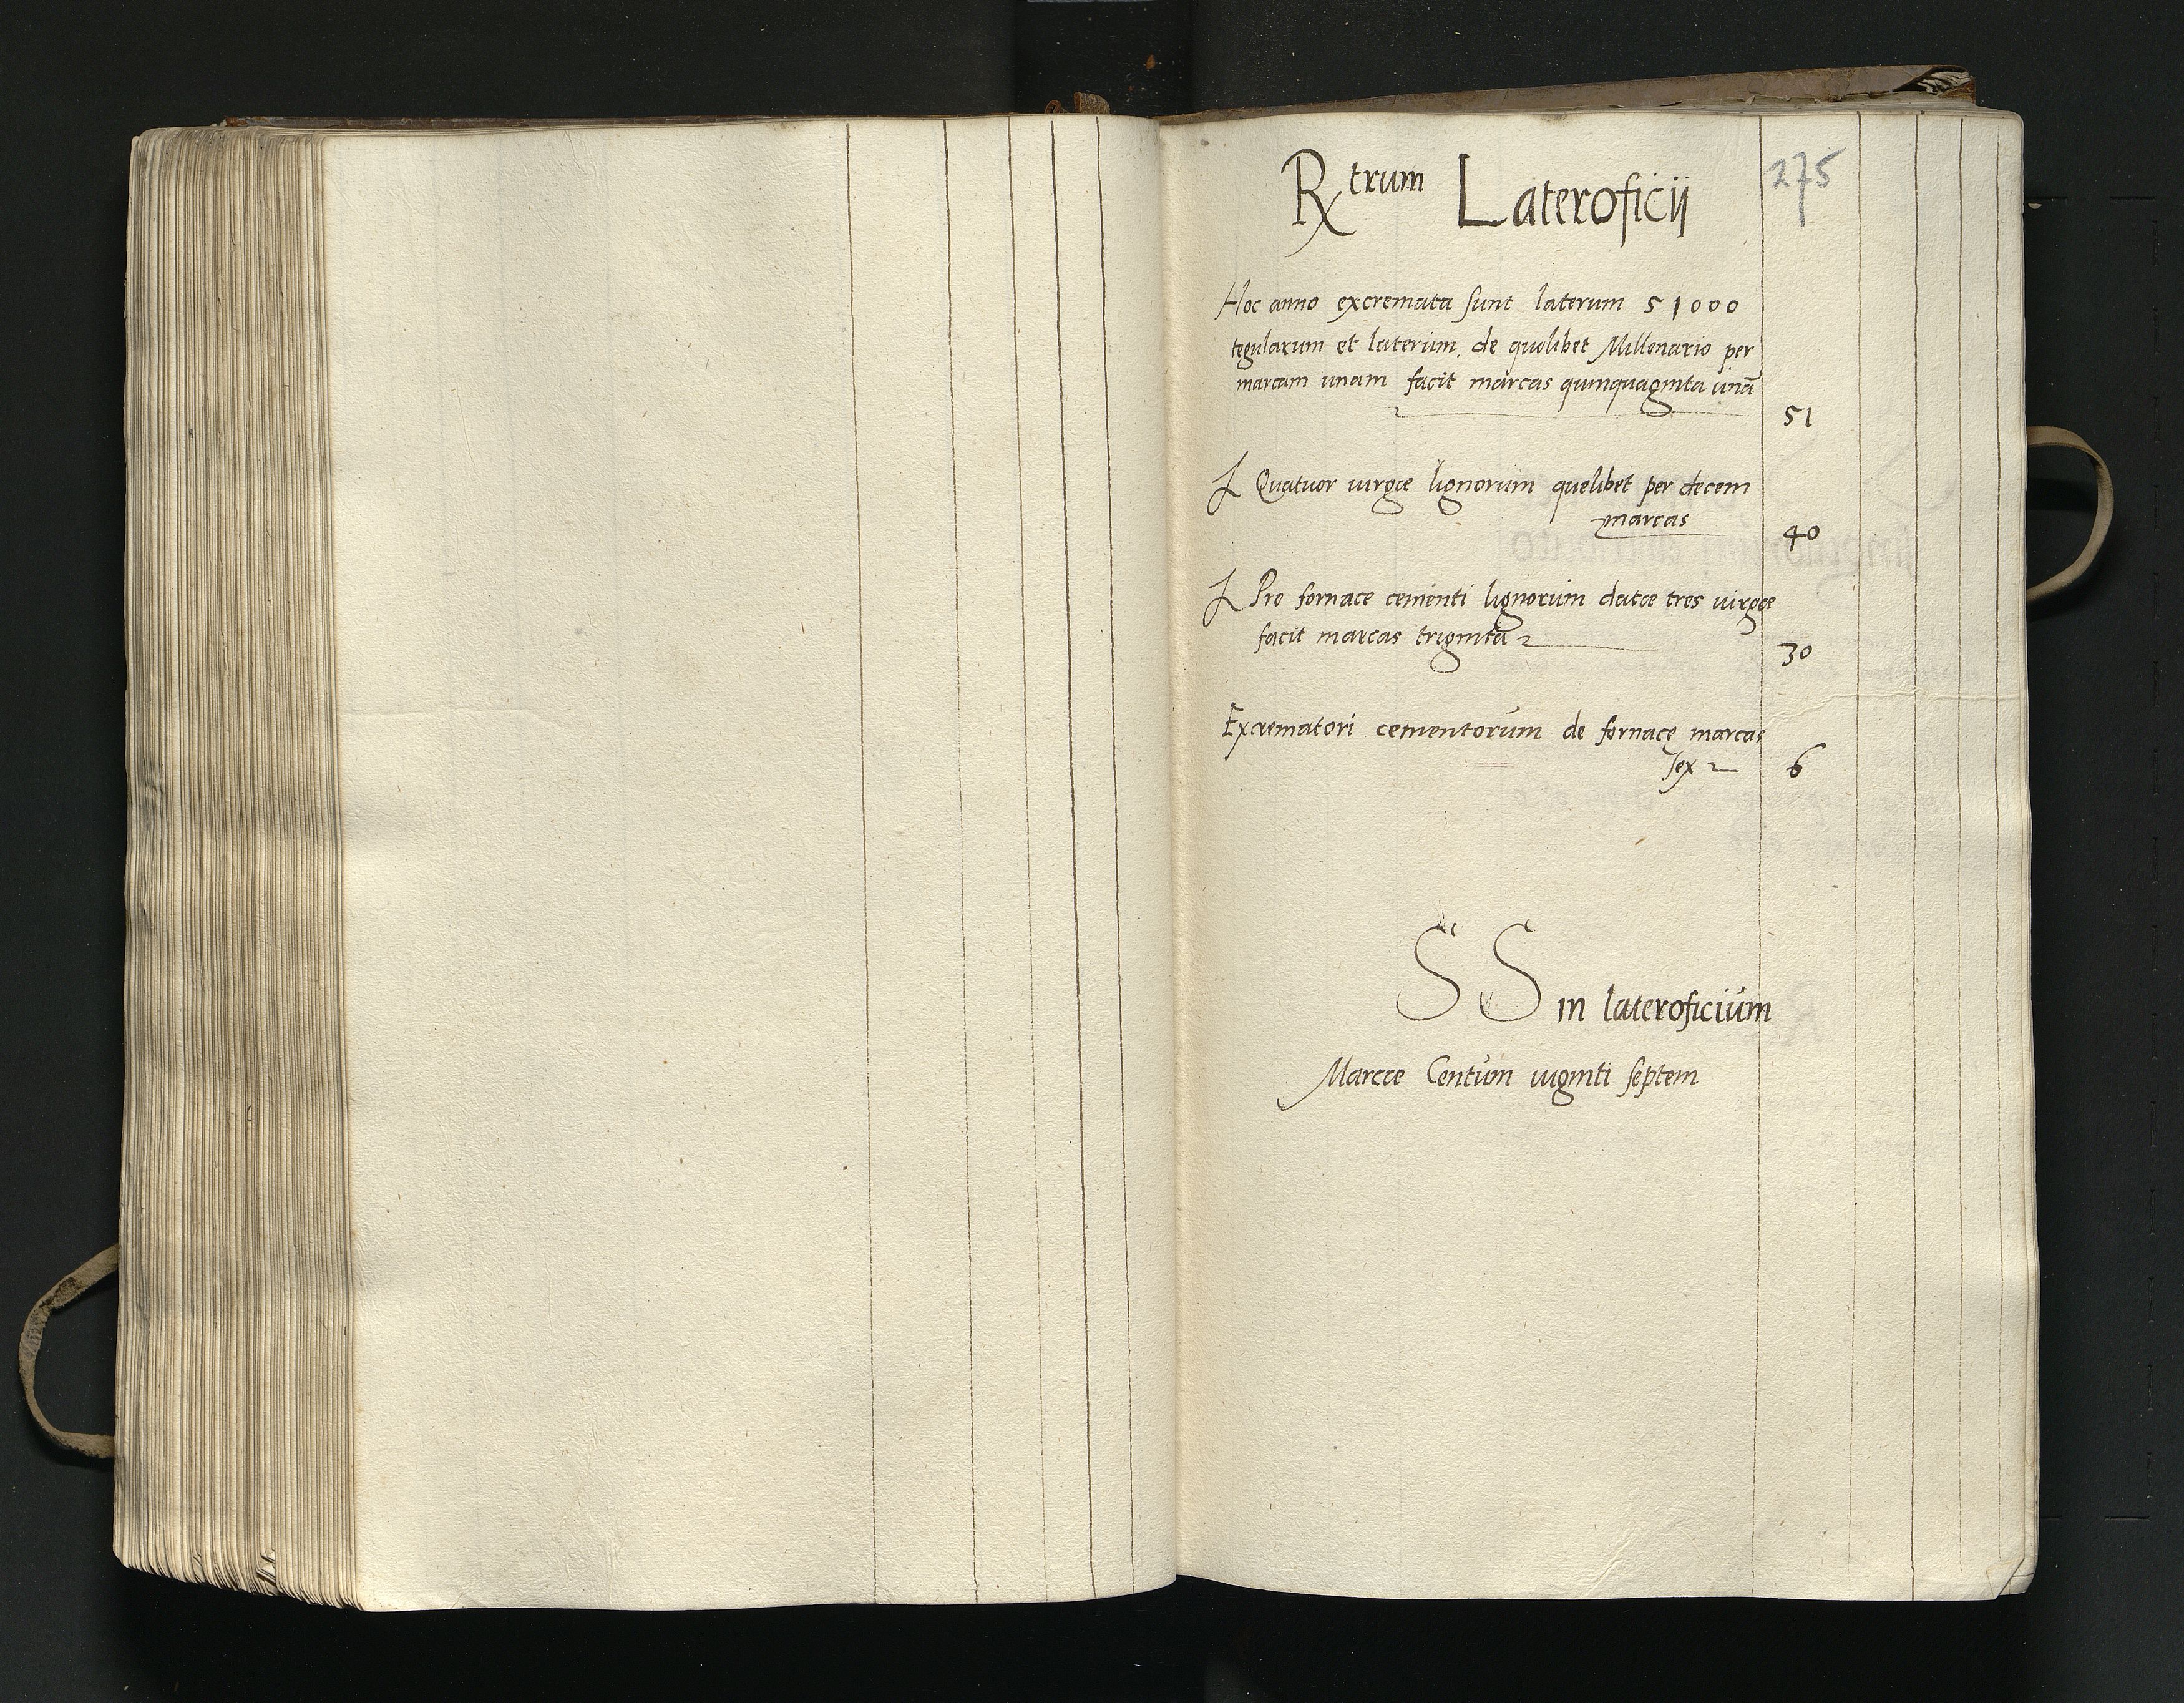 Rtrum Lateroficij
275
Hoc anno excremata sunt laterum 51000
tegularum et laterum, de quolibet Millenario per
marcam unam facit marcas quinquaginta unā
51
Quatuor virgae lignorum quelibet per decem
marcas
40
Pro fornace cementi lignorum datae tres virgae
facit marcas triginta
30
Excrematori cementorum de fornace marcas
sex
6
SS in lateroficium
Marcae Centum viginti septem